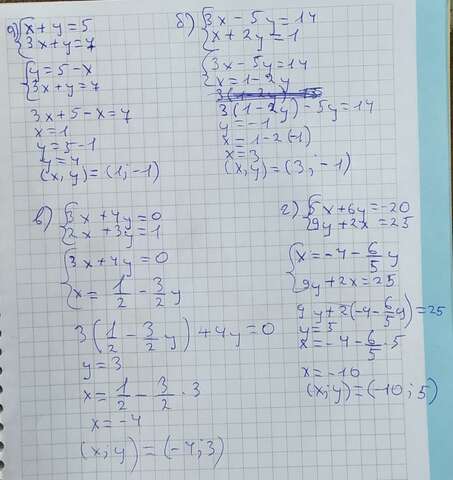 а) { x + y = 5
3x + y = 7
{ y = 5 - x
3x + y = 7
3x + 5 - x = 7
x = 1
y = 5 - 1
y = 4
(x, y) = (1; -1)
б) { 3x - 5y = 14
x + 2y = 1
{ 3x - 5y = 14
x = 1 - 2y
3(1 - 2y) - 5y = 14
y = -1
x = 1 - 2(-1)
x = 3
(x, y) = (3; -1)
в) { 3x + 4y = 0
2x + 3y = 1
{ 3x + 4y = 0
x = 1/2 - 3/2 y
3(1/2 - 3/2 y) + 4y = 0
y = 3
x = 1/2 - 3/2 · 3
x = -4
(x; y) = (-4; 3)
г) { 5x + 6y = -20
9y + 2x = 25
{ x = -4 - 6/5 y
9y + 2x = 25
9y + 2(-4 - 6/5 y) = 25
y = 5
x = -4 - 6/5 · 5
x = -10
(x; y) = (-10; 5)